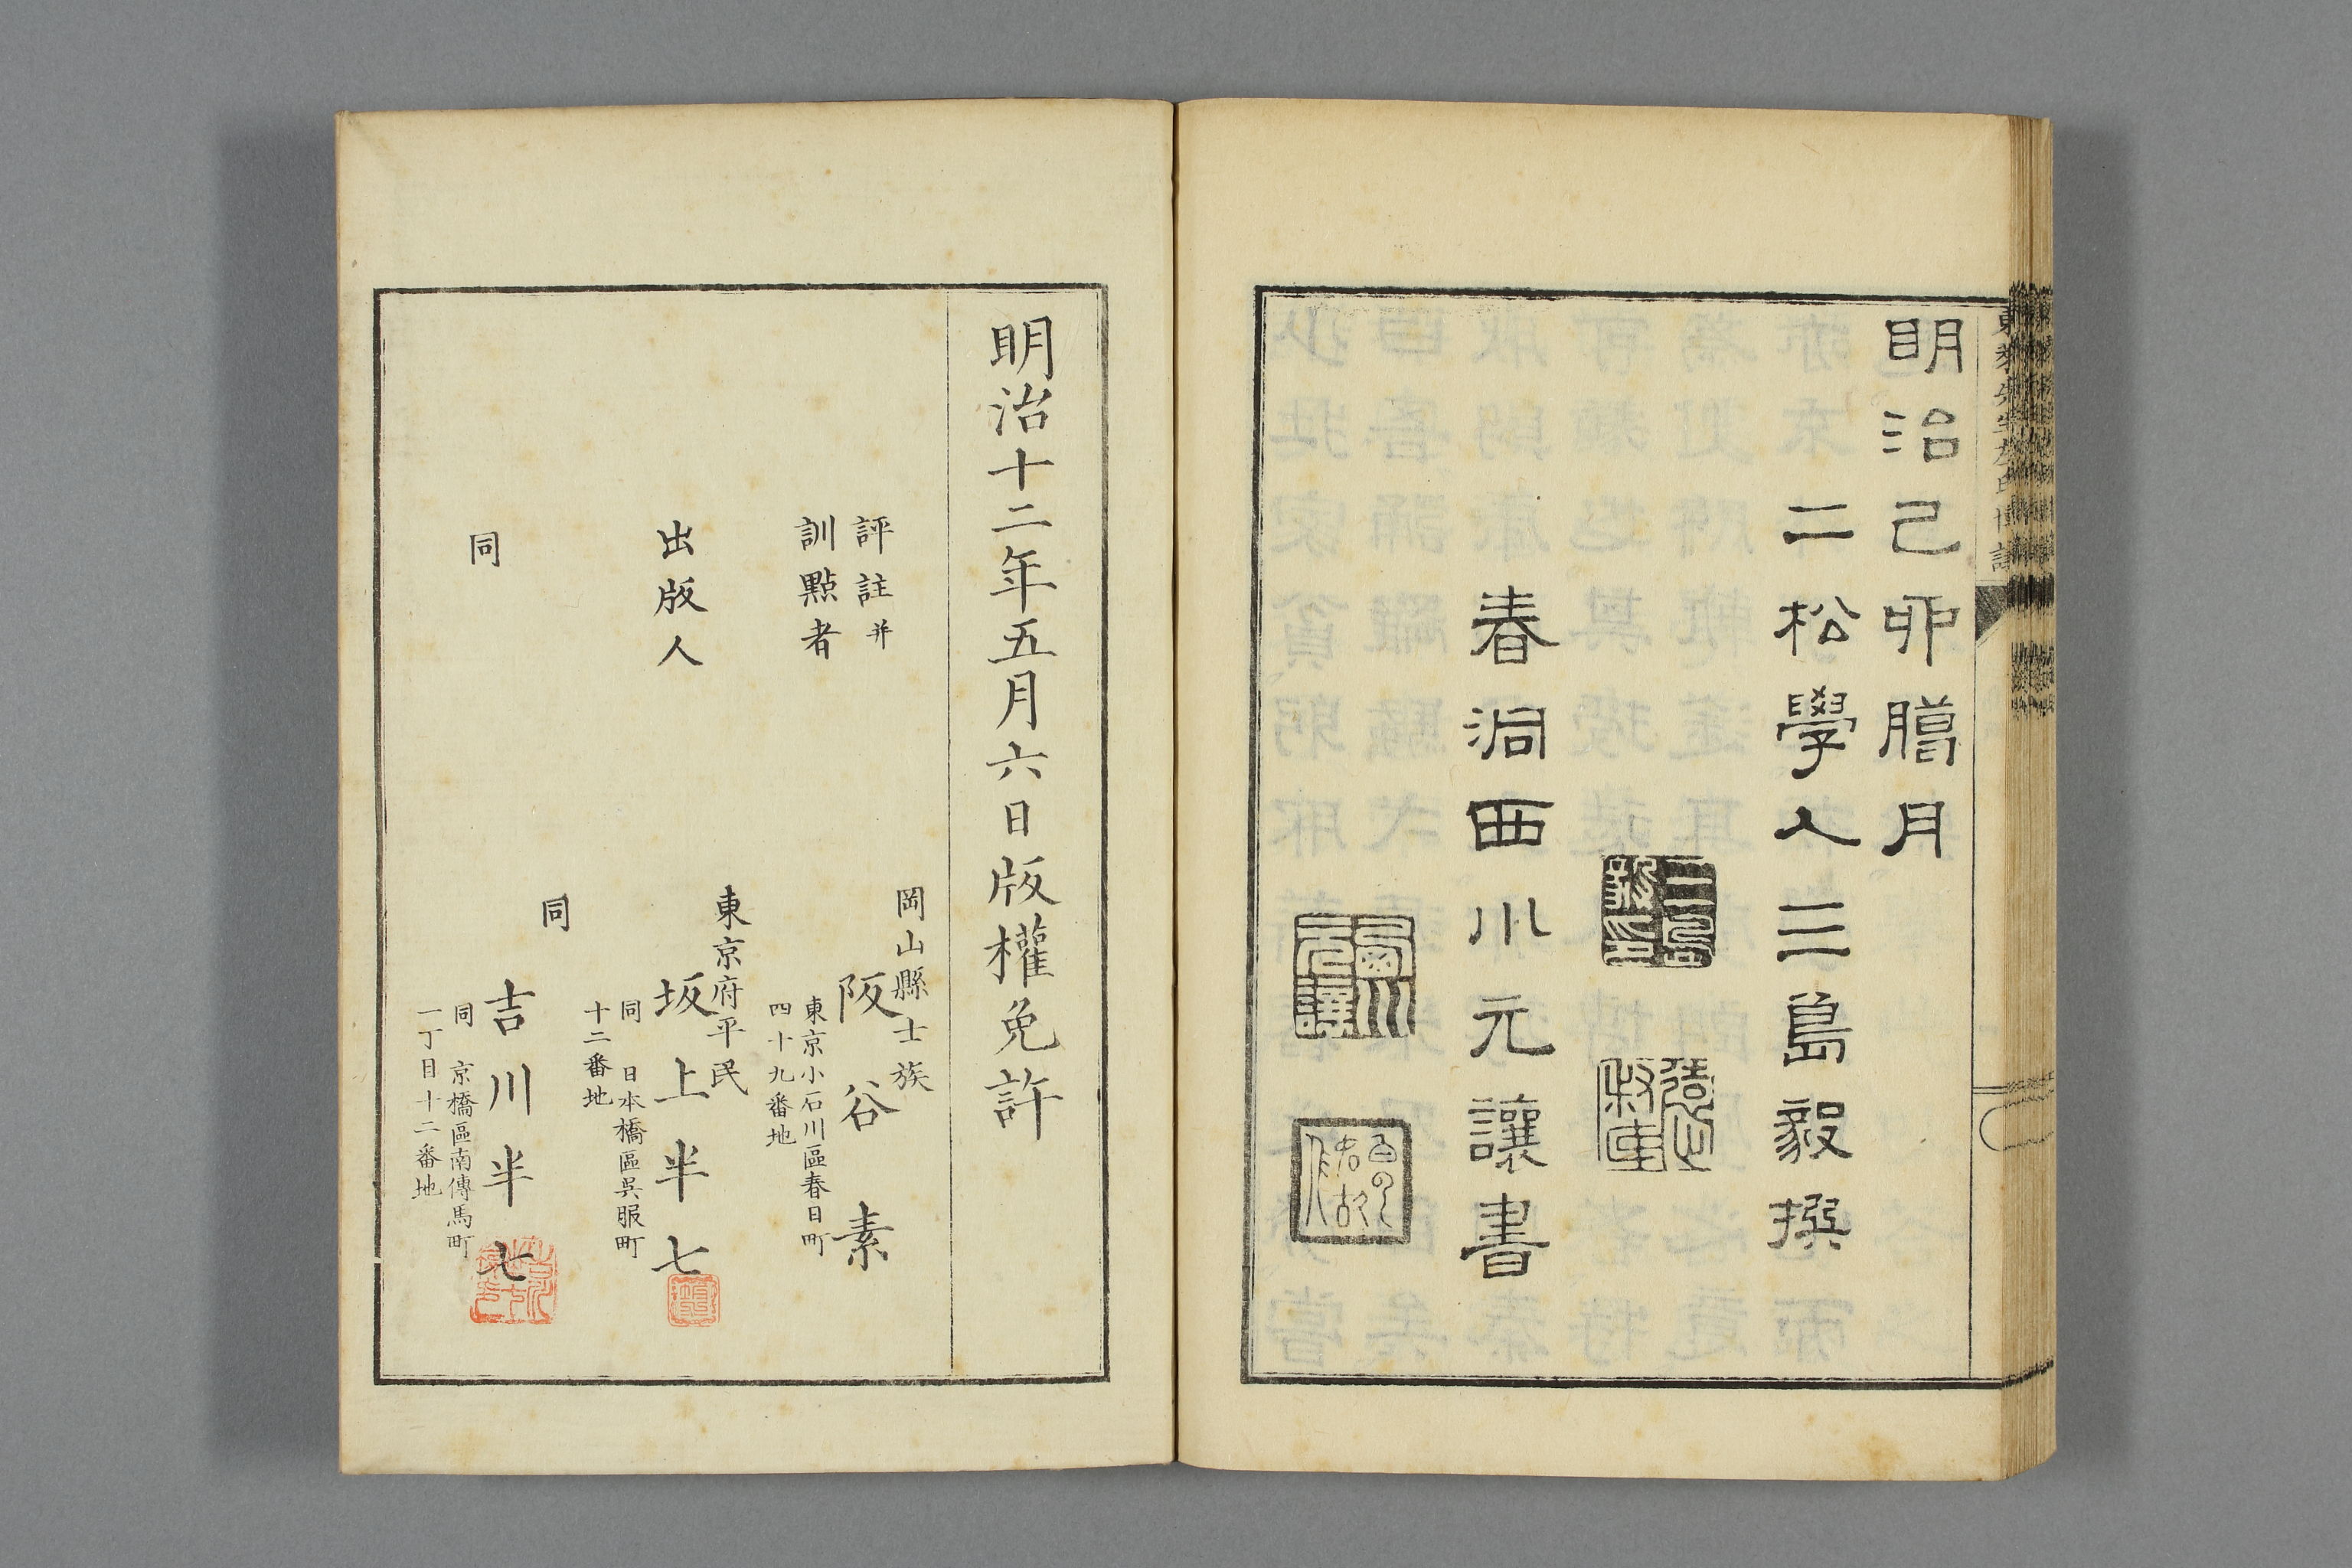 明治己卯臈月
二松學人三島毅撰
春洞西川元讓書
明治十二年五月六日版權免許
岡山縣士族
評註并
訓點者
阪谷素
東京小石川區春日町
四十九番地
東京府平民
出版人
坂上半七
同 日本橋區吳服町
十二番地
同
同
吉川半七
同 京橋區南傳馬町
一丁目十二番地